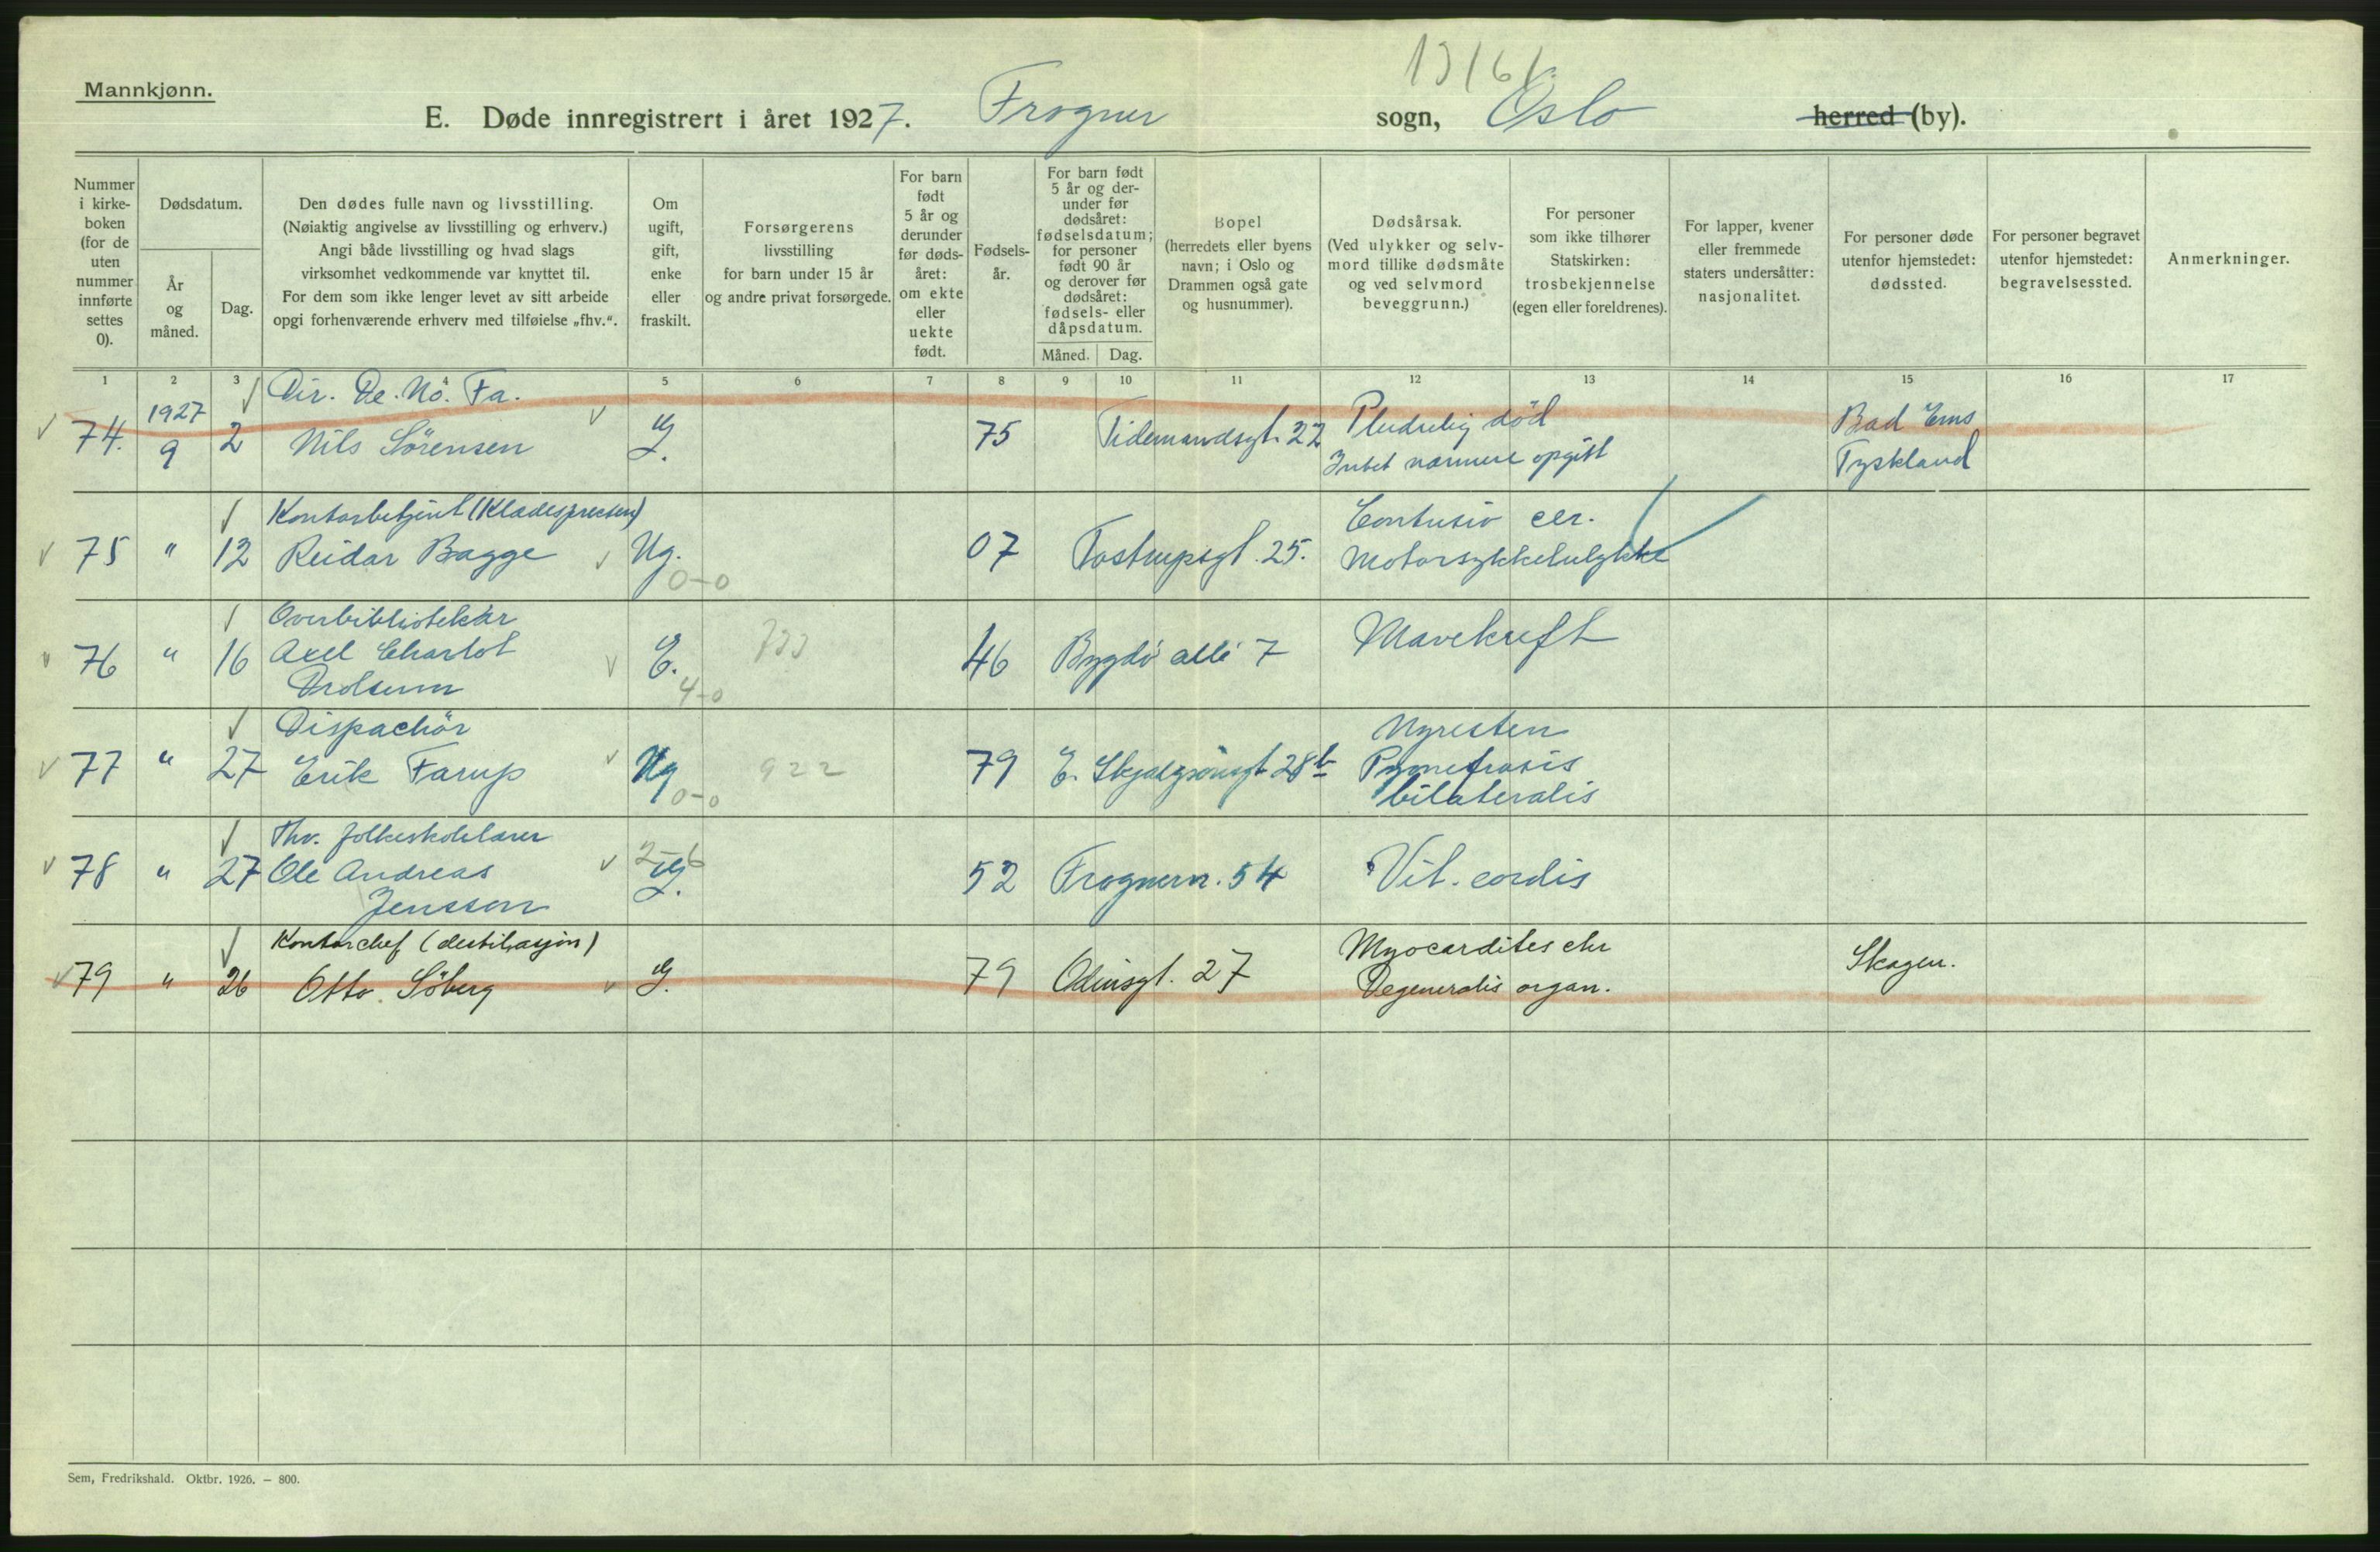 13/6/
Mannkjønn.
E. Døde innregistrert i året 1927. Frogner sogn, Oslo herred (by).
Nummer i kirkeboken (for de uten nummer innførte settes 0).
Dødsdatum.
År og måned.
Dag.
Den dødes fulle navn og livsstilling.
(Nøiaktig angivelse av livsstilling og erhverv.)
Angi både livsstilling og hvad slags
virksomhet vedkommende var knyttet til.
For dem som ikke lenger levet av sitt arbeide
opgi forhenværende erhverv med tilføielse „fhv.“.
Om ugift, gift, enke eller fraskilt.
Forsørgerens
livsstilling
for barn under 15 år
og andre privat forsørgede.
For barn født 5 år og derunder før dødsåret: om ekte eller uekte født.
Fødselsår.
For barn født 5 år og derunder før dødsåret: fødselsdatum; for personer født 90 år og derover før dødsåret: fødsels- eller dåpsdatum.
Måned. Dag.
Bopel
(herredets eller byens
navn; i Oslo og
Drammen også gate
og husnummer).
Dødsårsak.
(Ved ulykker og selvmord tillike dødsmåte
og ved selvmord
beveggrunn.)
For personer
som ikke tilhører
Statskirken:
trosbekjennelse
(egen eller foreldrenes).
For lapper, kvener
eller fremmede
staters undersåtter:
nasjonalitet.
For personer døde
utenfor hjemstedet:
dødssted.
For personer begravet
utenfor hjemstedet:
begravelsessted.
Anmerkninger.
1 2 3 4 5 6 7 8 9 10 11 12 13 14 15 16 17
Dir. De. No. Fa.
74. 1927 9 2 Nils Sörensen G. 75 Tidemandsgt. 22 Pludselig död
Intet nærmere opgitt
Bad Ems
Tyskland
Kontorbetjent
75 " 12 Reidar Bagge Ug. 0-0 07 Tostrupsgt. 25. Contusio cer.
Motorsykkelulykke
Overbibliotekær
76 " 16 Axel Charlot
Drolsum E. 4-0 46 Bygdö allé 7 Mavekreft
Dispachör
77 " 27 Erik Farup Ug 0-0 922 79 E. Skjalgsönsgt 28b Nyresten
Pyonefrosis
bilateralis
Fhv. folkeskolelærer
78 " 27 Ole Andreas
Jenssen 2-6 G. 52 Frognerv. 54 Vit. cordis
Kontorchef (destilasjon)
79 " 26 Otto Söberg G. 79 Odinsgt. 27 Myocardites chr
Degeneralis organ.
Skagen.
Sem, Fredrikshald. Oktbr. 1926. — 800.